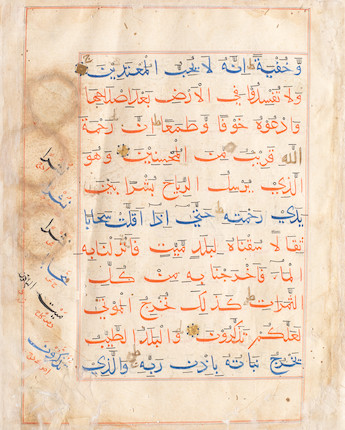 وَّخُفْيَةً اِنَّهُ لَا يُحِبُّ الْمُعْتَدِيْنَ
وَلَا تُفْسِدُوا فِي الْاَرْضِ بَعْدَ اِصْلَاحِهَا
وَادْعُوهُ خَوْفًا وَّطَمَعًا اِنَّ رَحْمَةَ
اللّٰهِ قَرِيْبٌ مِّنَ الْمُحْسِنِيْنَ وَهُوَ
الَّذِي يُرْسِلُ الرِّيَاحَ بُشْرًا بَيْنَ
يَدَيْ رَحْمَتِهِ حَتّٰى اِذَا اَقَلَّتْ سَحَابًا
ثِقَالًا سُقْنَاهُ لِبَلَدٍ مَّيِّتٍ فَاَنْزَلْنَا بِهِ
الْمَاءَ فَاَخْرَجْنَا بِهِ مِنْ كُلِّ
الثَّمَرَاتِ كَذٰلِكَ نُخْرِجُ الْمَوْتٰى
لَعَلَّكُمْ تَذَكَّرُوْنَ وَالْبَلَدُ الطَّيِّبُ
يَخْرُجُ نَبَاتُهُ بِاِذْنِ رَبِّهِ وَالَّذِي